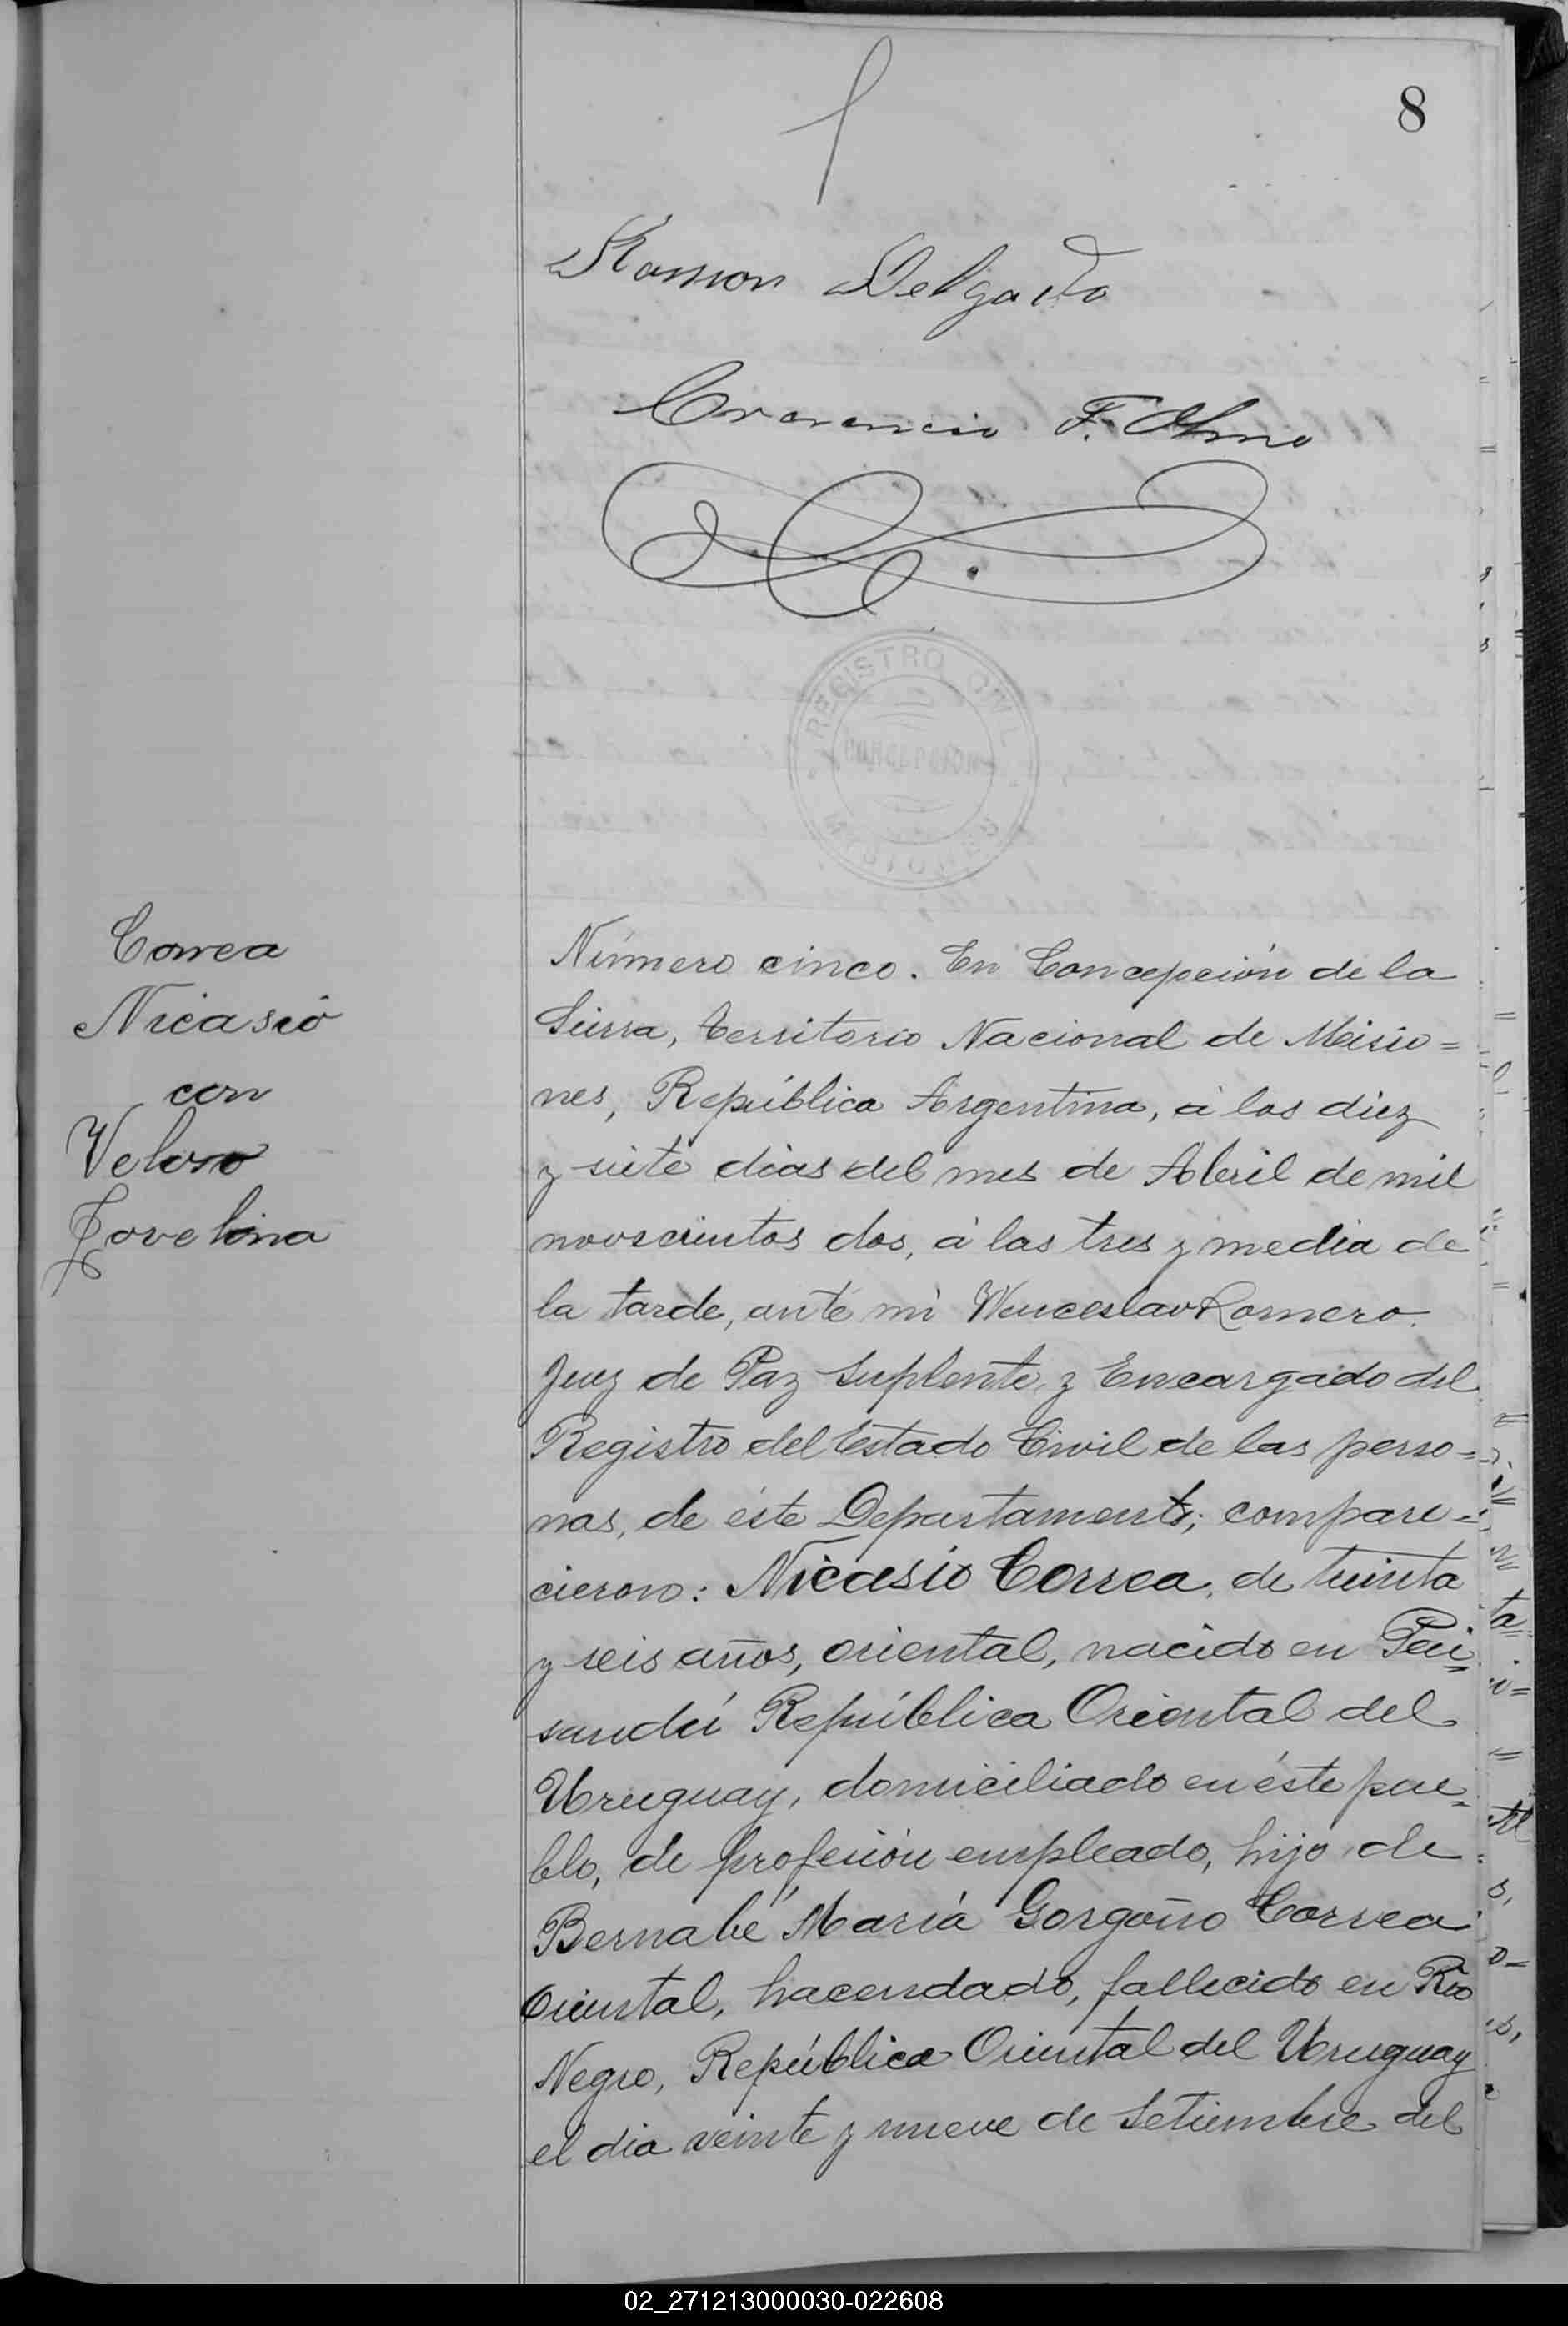 8
Ramon Delgado
F. Olmo
REGISTRO CIVIL
CONCEPCION
MISIONES
Correa
Nicasio
con
Veloso
Jovelina
Número cinco. En Concepción de la
Sierra, territorio Nacional de Misio=
nes, República Argentina, á los diez
y siete dias del mes de Abril de mil
novecientos dos, á las tres y media de
la tarde, ante mi Wenceslao Romero.
Juez de Paz Suplente y Encargado del
Registro del Estado Civil de las perso=
nas, de éste Departamento; compare=
cieron: Nicasio Correa, de treinta
y seis años, oriental, nacido en Pai=
sandú República Oriental del
Uruguay, domiciliado en éste pue=
blo, de profesión empleado, hijo de
Bernabé María Gorgoño Correa
Oriental, hacendado, fallecido en Rio
Negro, República Oriental del Uruguay
el dia veinte y nueve de Setiembre del
02_271213000030-022608